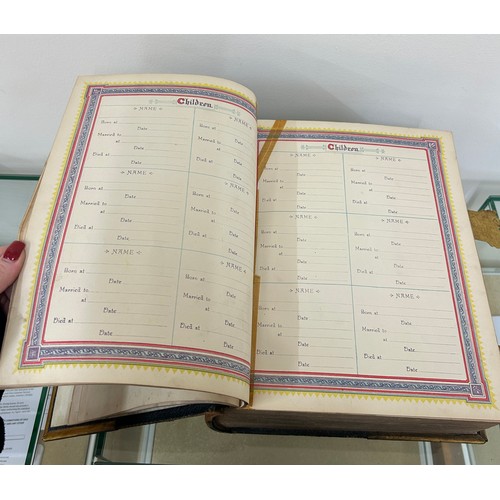 Children.
NAME NAME
Born at Born at
Date Date
Married to Married to
at at
Date Date
Died at Died at
Date Date
NAME NAME
Born at Born at
Date Date
Married to Married to
at at
Date Date
Died at Died at
Date Date
NAME NAME
Born at Born at
Date Date
Married to Married to
at at
Date Date
Died at Died at
Date Date
Children.
NAME NAME
Born at Born at
Date Date
Married to Married to
at at
Date Date
Died at Died at
Date Date
NAME NAME
Born at Born at
Date Date
Married to Married to
at at
Date Date
Died at Died at
Date Date
NAME NAME
Born at Born at
Date Date
Married to Married to
at at
Date Date
Died at Died at
Date Date